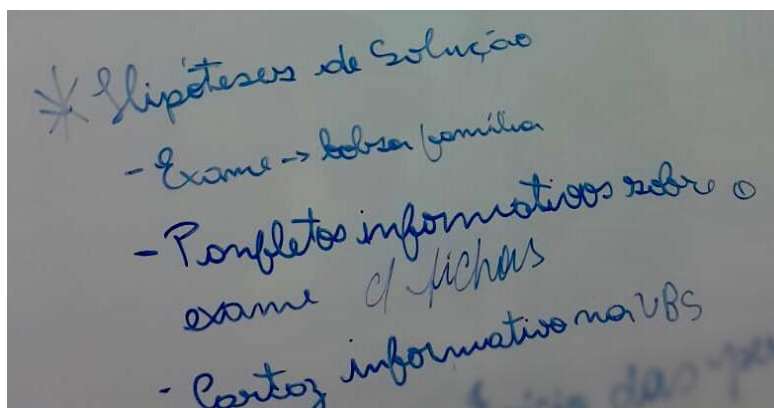 * Hipóteses de Solução
- Exame -> bolsa família
- Panfletos informativos sobre o
exame c/ fichas
- Cartaz informativo na UBS
das